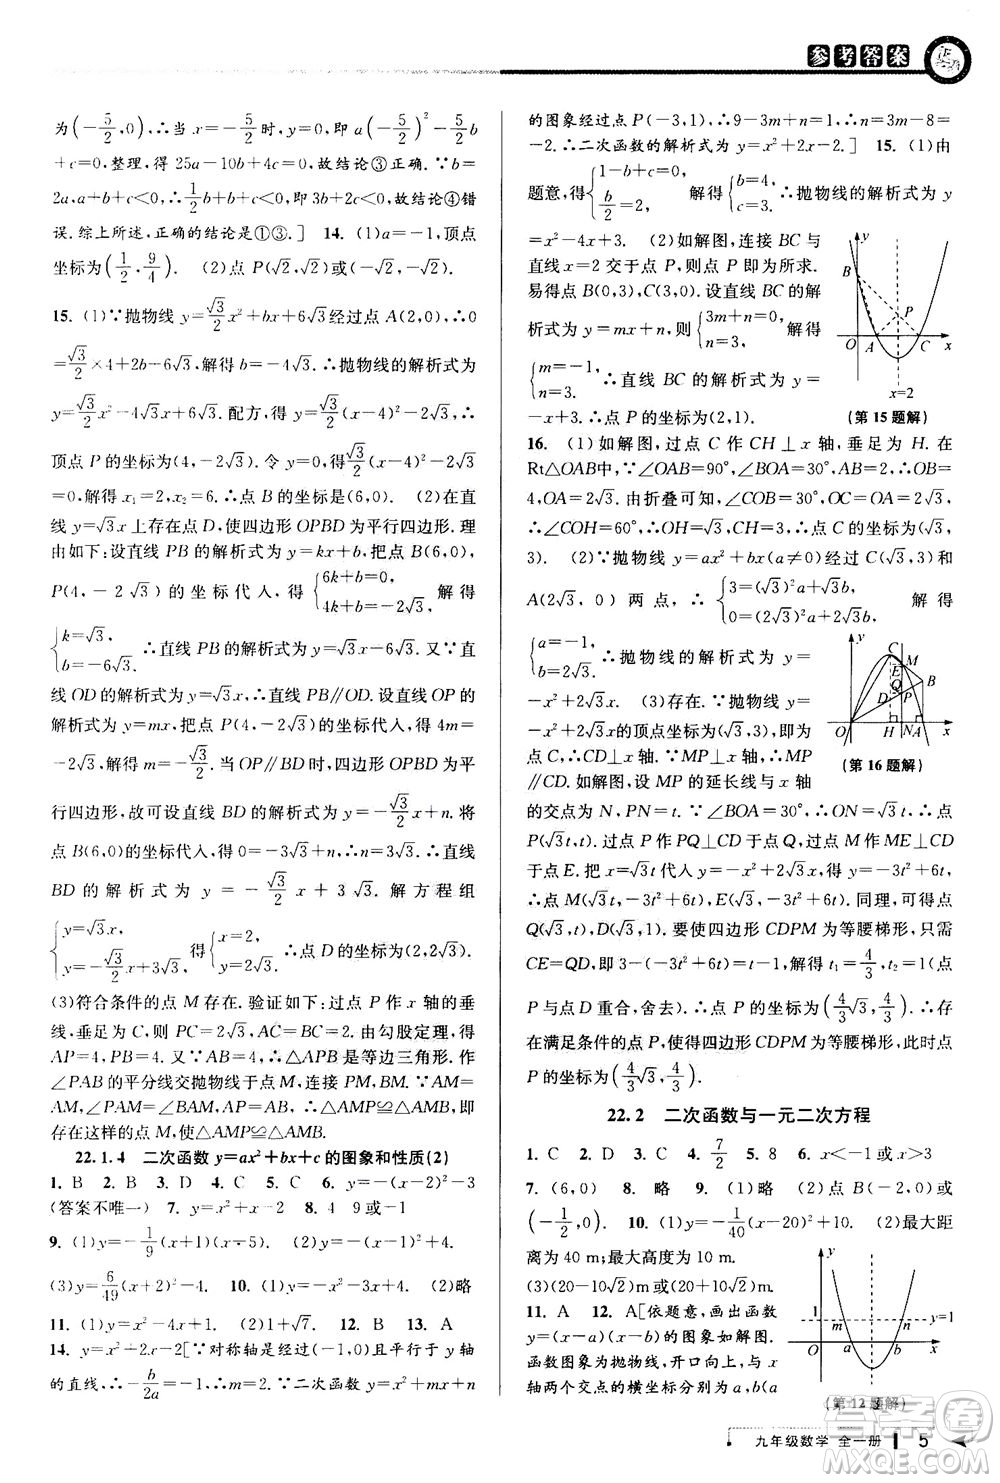 参考答案
为(-5/2,0),∴当 x=-5/2时,y=0,即 a(-5/2)²-5/2b
+c=0,整理,得 25a-10b+4c=0,故结论③正确.∵b=
2a,a+b+c<0,∴1/2b+b+c<0,即3b+2c<0,故结论④错
误.综上所述,正确的结论是①③.] 14. (1)a=-1,顶点
坐标为(1/2,9/4) (2)点 P(√2,√2)或(-√2,-√2)
15. (1)∵抛物线 y=√3/2x²+bx+6√3经过点 A(2,0),∴0
=√3/2×4+2b+6√3,解得 b=-4√3.∴抛物线的解析式为
y=√3/2x²-4√3x+6√3.配方,得 y=√3/2(x-4)²-2√3.∴
顶点 P 的坐标为(4,-2√3).令 y=0,得√3/2(x-4)²-2√3=
0,解得 x₁=2,x₂=6.∴点 B 的坐标是(6,0). (2)在直
线 y=√3x上存在点 D,使四边形 OPBD 为平行四边形.理
由如下:设直线 PB 的解析式为 y=kx+b,把 B(6,0),
P(4,-2√3)的坐标代入,得{6k+b=0, 4k+b=-2√3, 解得
{k=√3, b=-6√3. ∴直线 PB 的解析式为 y=√3x-6√3.又∵直
线 OD 的解析式为 y=√3x,∴直线 PB∥OD.设直线 OP 的
解析式为 y=mx,把点 P(4,-2√3)的坐标代入,得 4m=
-2√3,解得 m=-√3/2.当 OP∥BD 时,四边形 OPBD 为平
行四边形.设直线 BD 的解析式为 y=-√3/2x+n,将
点 B(6,0)的坐标代入,得 0=-3√3+n,∴n=3√3.∴直线
BD 的解析式为 y=-√3/2x+3√3.解方程组
{y=√3x, y=-√3/2x+3√3, 得{x=2, y=2√3. ∴点 D 的坐标为(2,2√3).
(3)符合条件的点 M 存在.验证如下:过点 P 作 x 轴的垂
线,垂足为 C,则 PC=2√3,AC=BC=2.由勾股定理,得
AP=4,PB=4.又∵AB=4,∴△APB 是等边三角形.作
∠PAB 的平分线交抛物线于点 M,连接 PM,BM.∵AM=
AM,∠PAM=∠BAM,AP=AB,∴△AMP≌△AMB.即
存在这样的点 M,使△AMP≌△AMB.
22.1.4 二次函数 y=ax²+bx+c 的图象和性质(2)
1. B 2. B 3. D 4. C 5. C 6. y=(x-2)²-3
(答案不唯一) 7. y=x²+x-2 8. 4 9或-1
9. (1)y=x²-2x-3 (2)y=-1/9(x+1)(x-5)
(3)y=6/49(x+2)²-4. 10. (1)y=-x²-4x (2)略
11. (1)y=-x²+2x+6. (2)1+√7 12. B 13. A
14. y=x²+2x-2[∵对称轴是经过(-1,0)且平行于 y 轴
的直线,∴-b/2a=-1,∴m=2.∵二次函数 y=x²+mx+n
的图象经过点 P(-3,1),∴9-3m+n=1,∴n=3m-8=
-2.∴二次函数的解析式为 y=x²+2x-2.] 15. (1)由
题意,得{1-b+c=0, b/2=2, 解得{b=4, c=3. ∴抛物线的解析式为 y
=x²-4x+3. (2)如解图,连接 BC 与
直线 x=2 交于点 P,则点 P 即为所求.
易得点 B(0,3),C(3,0).设直线 BC 的解
析式为 y=mx+n,则{3m+n=0, n=3, 解得
{m=-1, n=3. ∴直线 BC 的解析式为 y=
-x+3.∴点 P 的坐标为(2,1).
y B P O A C x x=2
(第 15 题解)
16. (1)如解图,过点 C 作 CH⊥x 轴,垂足为 H.在
Rt△OAB 中,∵∠OAB=90°,∠BOA=30°,OB=
4,OA=2√3.由折叠可知,∠COB=30°,OC=OA=2√3,
∴∠COH=60°,∴OH=√3,CH=3,∴点 C 的坐标为(√3,
3). (2)∵抛物线 y=ax²+bx(a≠0)经过 C(√3,3)和
A(2√3,0)两点,∴{3=(√3)²a+√3b, 0=(2√3)²a+2√3b, 解得
{a=-1, b=2√3. ∴抛物线的解析式为 y=
-x²+2√3x. (3)存在.∵抛物线 y=
-x²+2√3x 的顶点坐标为(√3,3),即为点
C,∴CD⊥x 轴.∵MP⊥x 轴,∴MP
∥CD.如解图,设 MP 的延长线与 x 轴
y C M E Q B D P O H N A x
(第 16 题解)
的交点为 N,PN=t.∵∠BOA=30°,∴ON=√3t,∴点
P(√3t,t).过点 P 作 PQ⊥CD于点 Q,过点 M 作 ME⊥CD于
点 E.把 x=√3t 代入 y=-x²+2√3x,得 y=-3t²+6t,
∴点 M(√3t,-3t²+6t),E(√3,-3t²+6t).同理,可得点
Q(√3,t),D(√3,1).要使四边形 CDPM 为等腰梯形,只需
CE=QD,即 3-(-3t²+6t)=t-1,解得 t₁=4/3,t₂=1(点
P 与点 D 重合,舍去).∴点 P 的坐标为(4/3√3,4/3).∴存
在满足条件的点 P,使得四边形 CDPM 为等腰梯形,此时点
P 的坐标为(4/3√3,4/3).
22.2 二次函数与一元二次方程
1. C 2. B 3. C 4. 7/2 5. 8 6. x<-1 或 x>3
7. (6,0) 8. 略 9. (1)略 (2)点 B(-2,0)或
(-1/2,0). 10. (1)y=-1/40(x-20)²+10. (2)最大距
离为 40 m;最大高度为 10 m.
(3)(20-10√2)m 或(20+10√2)m.
11. A 12. A[依题意,画出函数
y=(x-a)(x-b)的图象如解图.
函数图象为抛物线,开口向上,与 x
轴两个交点的横坐标分别为 a,b(a
y 1 y=1 m n O a b x
(第 12 题解)
九年级数学 全一册 5